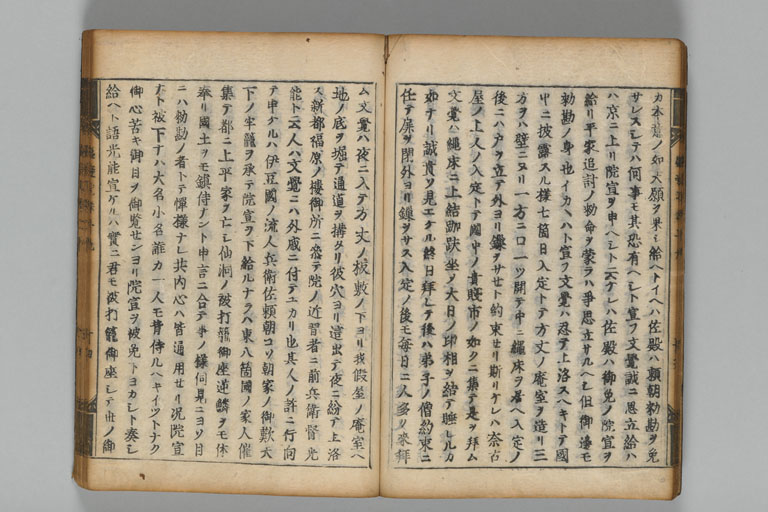 カ本意ノ如大願ヲ果シ給ヘトイヘハ佐殿ハ頼朝勅勘ヲ免
サレスシテハ何事モ其恐有ヘシト宣フ文覺誠ニ思立給ハ
ハ京ニ上リ院宣ヲ申ヘシト云ケレハ佐殿ハ御免ノ院宣ヲ
給リ平家追討ノ勅命ヲ蒙ラハ爭思立サルヘシ但御邊モ
勅勘ノ身也イカヽハト宣フ文覺ハ忍テ上洛スヘキトテ國
中ニ披露スル樣七箇日入定トテ方丈ノ庵室ヲ造リ三
方ヲハ壁ニヌリ一方ニ口一ツ開テ中ニ繩床ヲ置ヘ入定ノ
後ニハ戸ヲ立テ外ヨリ鏁ヲサセト約束セリ斯リケレハ奈古
屋ノ上人ノ入定トテ國中ノ貴賤市ノ如クニ集テ是ヲ拜ム
文覺ハ繩床ニ上結跏趺坐ヲ大日ノ印相ヲ結テ睡レルカ
如ナリ誠貴ソ見エケル終日拜シテ後ハ弟子ノ僧約束ニ
任テ扉ヲ閉外ヨリ鏁ヲサス入定ノ後モ毎日ニ人多ク參拜
ム文覺ハ夜ニ入テ方丈ノ板敷ノ下ヨリ我假屋ノ庵室ヘ
地ノ底ヲ堀テ通道ヲ構タリ彼穴ヨリ這出テ夜ニ紛テ上洛
ス新都福原ノ樓御所ニ忍テ院ノ近習者ニ前兵衞督光
能ト云人ハ文覺ニハ外戚ニ付テユカリ也其人ノ許ニ行向
テ申ケルハ伊豆國ノ流人兵衞佐頼朝コソ朝家ノ御歎天
下ノ牢籠ヲ承テ院宣ヲ下給ルナラハ東八箇國ノ家人催
集テ都ニ上平家ヲ亡シ仙洞ノ被打籠御座逆鱗ヲモ休
奉リ國土ヲモ鎭侍ナント申言ニ合テ伺見ニヨソ目
ニハ勅勘ノ者トテ憚樣ナレ共内心ハ皆通用セリ況院宣
タト被下ナハ大名小名誰カ一人モ背侍ルヘキイツトナク
御心苦キ御目ヲ御覧センヨリ院宣ヲ被免下ヨカレト奏シ
給ハト語光能宣ケルハ實ニ君モ被打籠御座シテ世ノ御